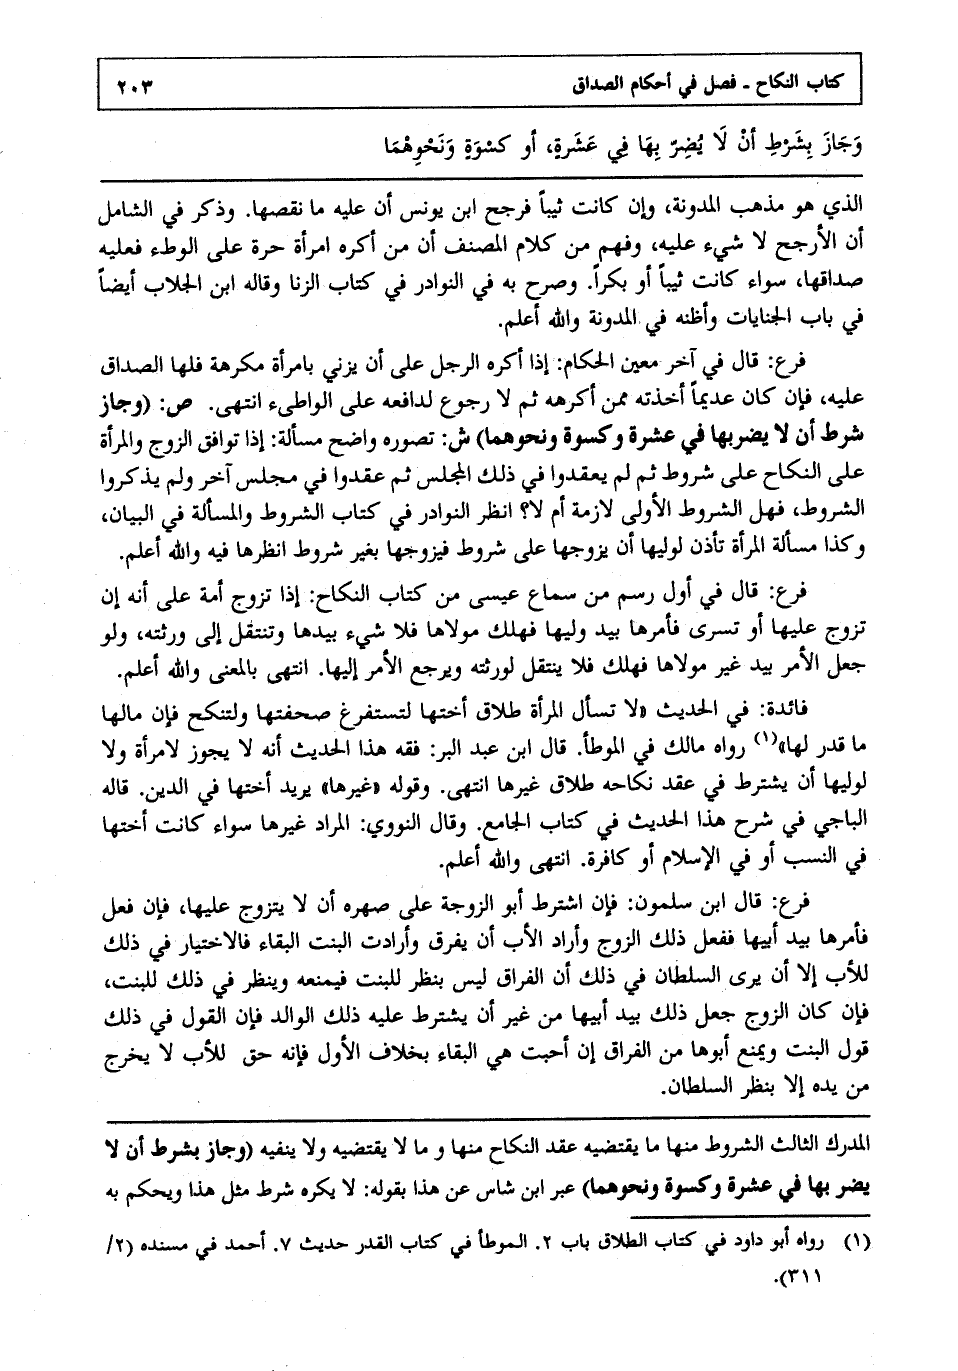 كتاب النكاح ـ فصل في أحكام الصداق ٢٠٣
وَجَازَ بِشَرْطِ أنْ لَا يُضِرّ بِهَا فِي عَشَرةٍ، أو كسْوَةٍ وَنَحْوِهْمَا
الذي هو مذهب المدونة، وإن كانت ثيباً فرجح ابن يونس أن عليه ما نقصها. وذكر في الشامل
أن الأرجح لا شيء عليه، وفهم من كلام المصنف أن من أكره امرأة حرة على الوطء فعليه
صداقها، سواء كانت ثيباً أو بكراً. وصرح به في النوادر في كتاب الزنا وقاله ابن الجلاب أيضاً
في باب الجنايات وأظنه في المدونة والله أعلم.
فرع: قال في آخر معين الحكام: إذا أكره الرجل على أن يزني بامرأة مكرهة فلها الصداق
عليه، فإن كان عديماً أخذته ممن أكرهه ثم لا رجوع لدافعه على الواطىء انتهى. ص: (وجاز
شرط أن لا يضربها في عشرة وكسوة ونحوهما) ش: تصوره واضح مسألة: إذا توافق الزوج والمرأة
على النكاح على شروط ثم لم يعقدوا في ذلك المجلس ثم عقدوا في مجلس آخر ولم يذكروا
الشروط، فهل الشروط الأولى لازمة أم لا؟ انظر النوادر في كتاب الشروط والمسألة في البيان،
وكذا مسألة المرأة تأذن لوليها أن يزوجها على شروط فيزوجها بغير شروط انظرها فيه والله أعلم.
فرع: قال في أول رسم من سماع عيسى من كتاب النكاح: إذا تزوج أمة على أنه إن
تزوج عليها أو تسرى فأمرها بيد وليها فهلك مولاها فلا شيء بيدها وتنتقل إلى ورثته، ولو
جعل الأمر بيد غير مولاها فهلك فلا ينتقل لورثته ويرجع الأمر إليها. انتهى بالمعنى والله أعلم.
فائدة: في الحديث «لا تسأل المرأة طلاق أختها لتستفرغ صحفتها ولتنكح فإن مالها
ما قدر لها»(١) رواه مالك في الموطأ. قال ابن عبد البر: فقه هذا الحديث أنه لا يجوز لامرأة ولا
لوليها أن يشترط في عقد نكاحه طلاق غيرها انتهى. وقوله «غيرها» يريد أختها في الدين. قاله
الباجي في شرح هذا الحديث في كتاب الجامع. وقال النووي: المراد غيرها سواء كانت أختها
في النسب أو في الإسلام أو كافرة. انتهى والله أعلم.
فرع: قال ابن سلمون: فإن اشترط أبو الزوجة على صهره أن لا يتزوج عليها، فإن فعل
فأمرها بيد أبيها ففعل ذلك الزوج وأراد الأب أن يفرق وأرادت البنت البقاء فالاختيار في ذلك
للأب إلا أن يرى السلطان في ذلك أن الفراق ليس بنظر للبنت فيمنعه وينظر في ذلك للبنت،
فإن كان الزوج جعل ذلك بيد أبيها من غير أن يشترط عليه ذلك الوالد فإن القول في ذلك
قول البنت ويمنع أبوها من الفراق إن أحبت هي البقاء بخلاف الأول فإنه حق للأب لا يخرج
من يده إلا بنظر السلطان.
المدرك الثالث الشروط منها ما يقتضيه عقد النكاح منها و ما لا يقتضيه ولا ينفيه (وجاز بشرط أن لا
يضر بها في عشرة وكسوة ونحوهما) عبر ابن شاس عن هذا بقوله: لا يكره شرط مثل هذا ويحكم به
(١) رواه أبو داود في كتاب الطلاق باب ٢. الموطأ في كتاب القدر حديث ٧. أحمد في مسنده (٢/
٣١١).